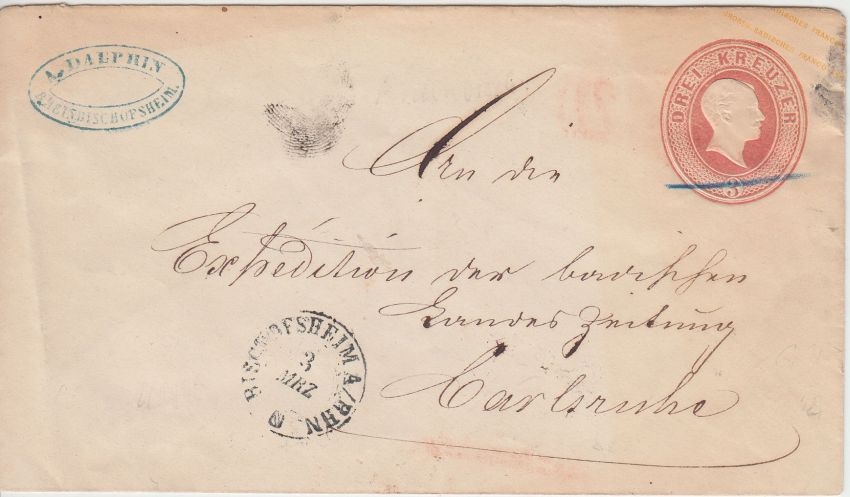 A. DALPHIN
RHEINBISCHOFSHEIM.
GROSH. BADISCHES FRANCO
DREI KREUZER
3
An die
Expedition der badischen
Landes Zeitung
Carlsruhe
BISCHOFSHEIM A/RHN
3
MRZ